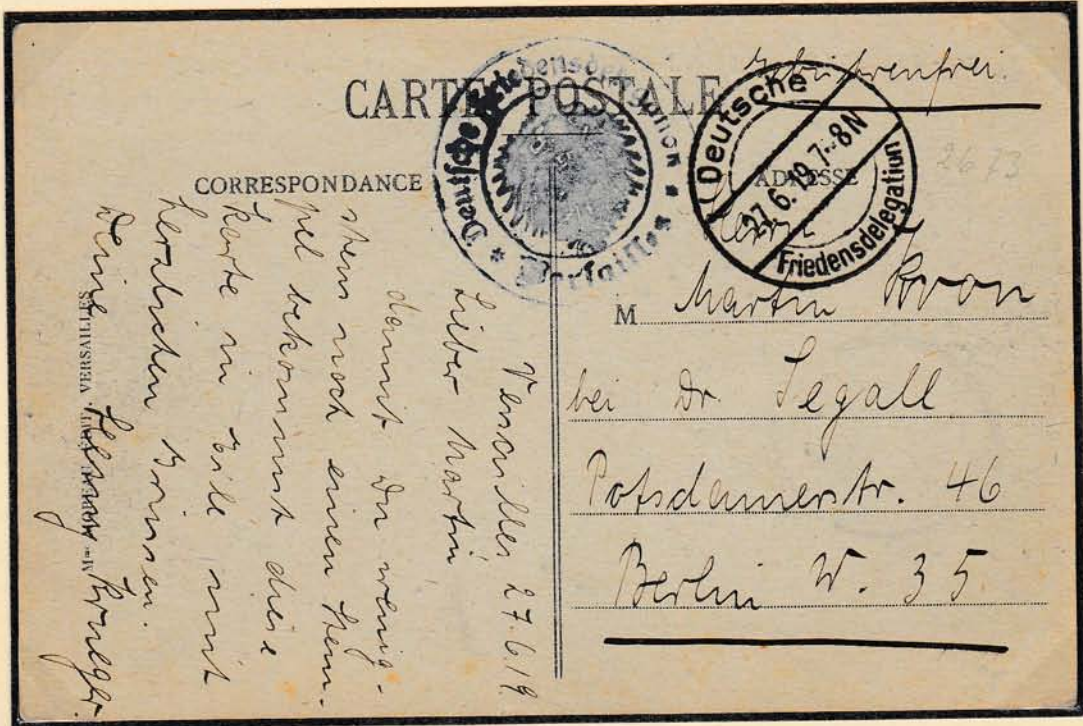 Gebührenfrei.
CARTE POSTALE
Deutsche Friedensdelegation
* Versailles *
Deutsche
27.6.19.7-8N
Friedensdelegation
2673
CORRESPONDANCE
ADRESSE
Herrn
M Martin Kron
bei Dr. Segall
Potsdamerstr. 46
Berlin W. 35
Versailles 27.6.19.
Lieber Martin
damit Du wenig-
stens noch einen Stem-
pel bekommst diese
Karte in Eile mit
herzlichen Grüssen.
Deine Krueger.
VERSAILLES